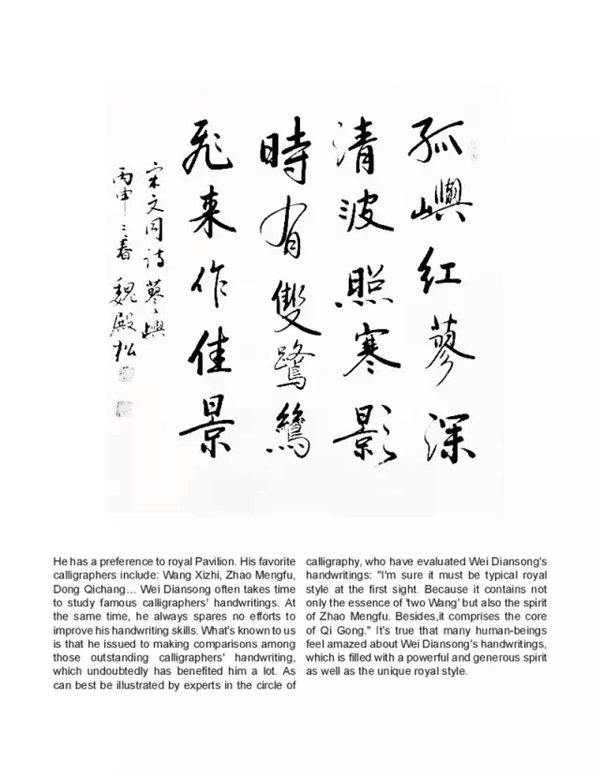 孤嶼红蓼深
清波照寒影
時有雙鷺鷥
飛来作佳景
宋文同诗蓼嶼
丙申之春 魏殿松
He has a preference to royal Pavilion. His favorite
calligraphers include: Wang Xizhi, Zhao Mengfu,
Dong Qichang… Wei Diansong often takes time
to study famous calligraphers' handwritings. At
the same time, he always spares no efforts to
improve his handwriting skills. What's known to us
is that he issued to making comparisons among
those outstanding calligraphers' handwriting,
which undoubtedly has benefited him a lot. As
can best be illustrated by experts in the circle of
calligraphy, who have evaluated Wei Diansong's
handwritings: "I'm sure it must be typical royal
style at the first sight. Because it contains not
only the essence of 'two Wang' but also the spirit
of Zhao Mengfu. Besides,it comprises the core
of Qi Gong." It's true that many human-beings
feel amazed about Wei Diansong's handwritings,
which is filled with a powerful and generous spirit
as well as the unique royal style.